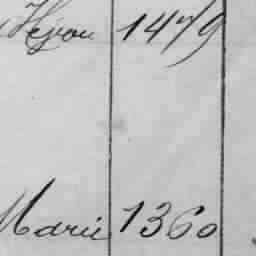 Heyrou 1479
Marie 1360